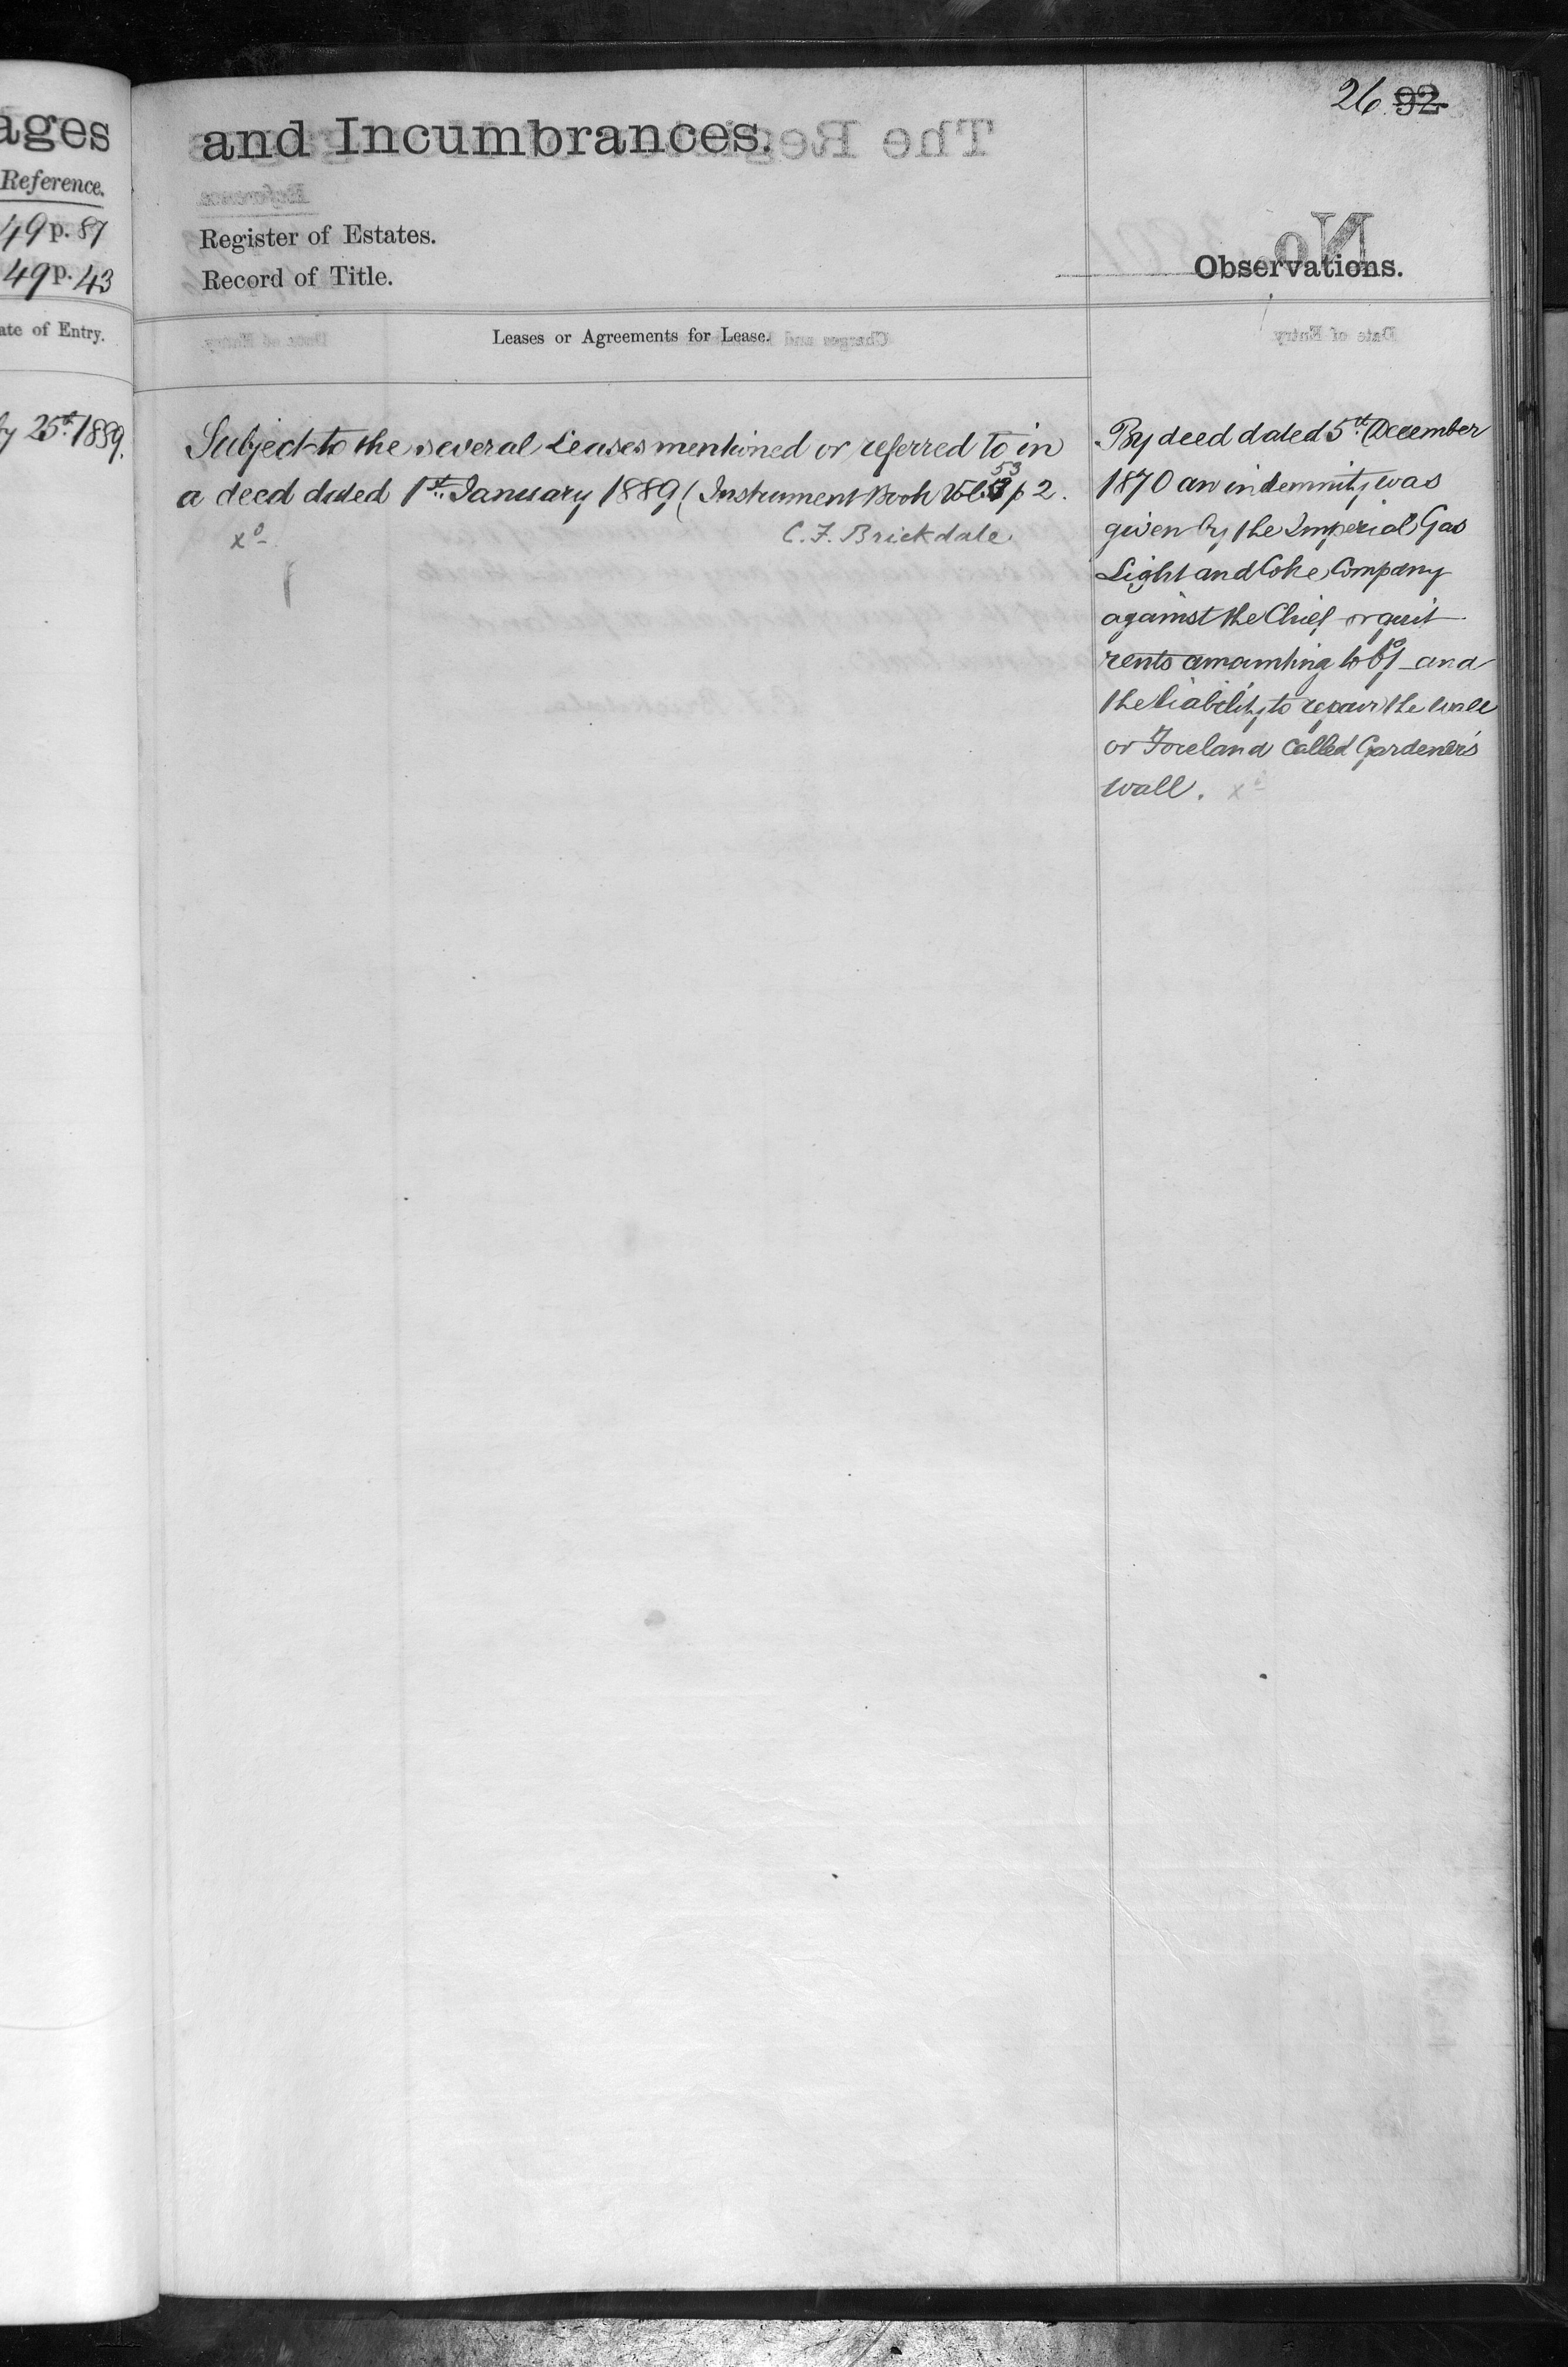 ages
Reference.
49 p. 87
49 p. 43
ate of Entry.
25th 1889.
26. 92
and Incumbrances.
Register of Estates.
Record of Title.
Observations.
Leases or Agreements for Lease.
Subject to the several Leases mentioned or referred to in
a deed dated 1st January 1889 (Instrument Book Vol 53 p 2.
xd
C. F. Brickdale
By deed dated 5th December
1870 an indemnity was
given by the Imperial Gas
Light and Coke Company
against the Chief or quit
rents amounting to and
the liability to repair the wall
or Foreland called Gardener's
wall. xd